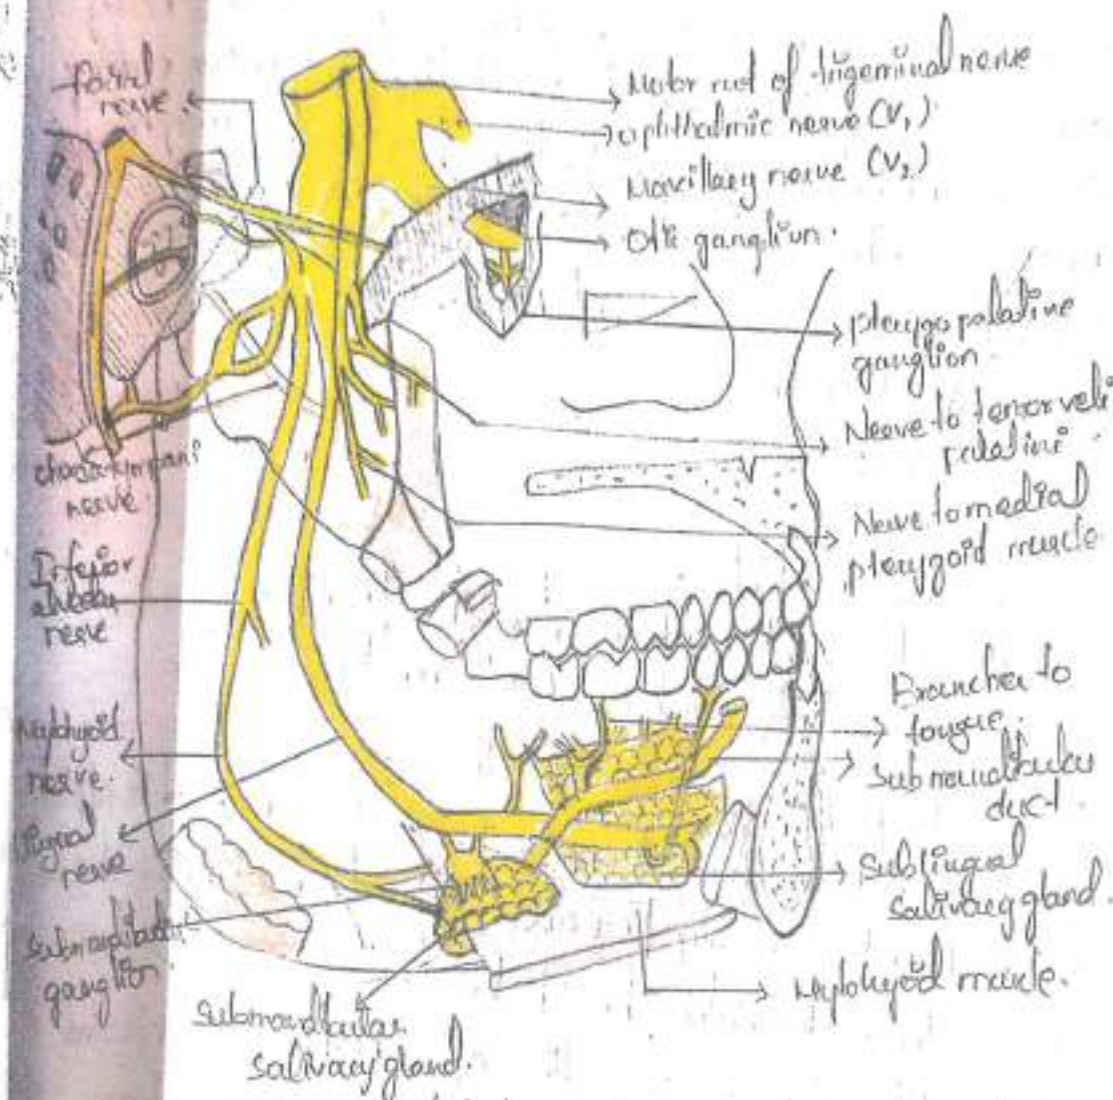 facial
nerve.
Motor root of trigeminal nerve
ophthalmic nerve (V₁)
Maxillary nerve (V₂)
Otic ganglion.
pterygopalatine
ganglion
Nerve to tensor veli
palatini
Nerve to medial
pterygoid muscle
chorda tympani
nerve.
Inferior
alveolar
nerve
Mylohyoid
nerve.
lingual
nerve
Submandibular
ganglion.
Branches to
tongue.
Submandibular
duct.
Sublingual
salivary gland.
Mylohyoid muscle.
Submandibular
salivary gland.